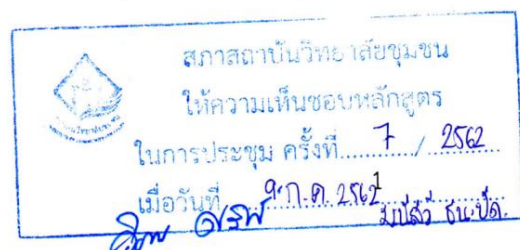 สภาสถาบันวิทยาลัยชุมชน
ให้ความเห็นชอบหลักสูตร
ในการประชุม ครั้งที่ 7 / 2562
เมื่อวันที่ 9 ก.ค. 2562